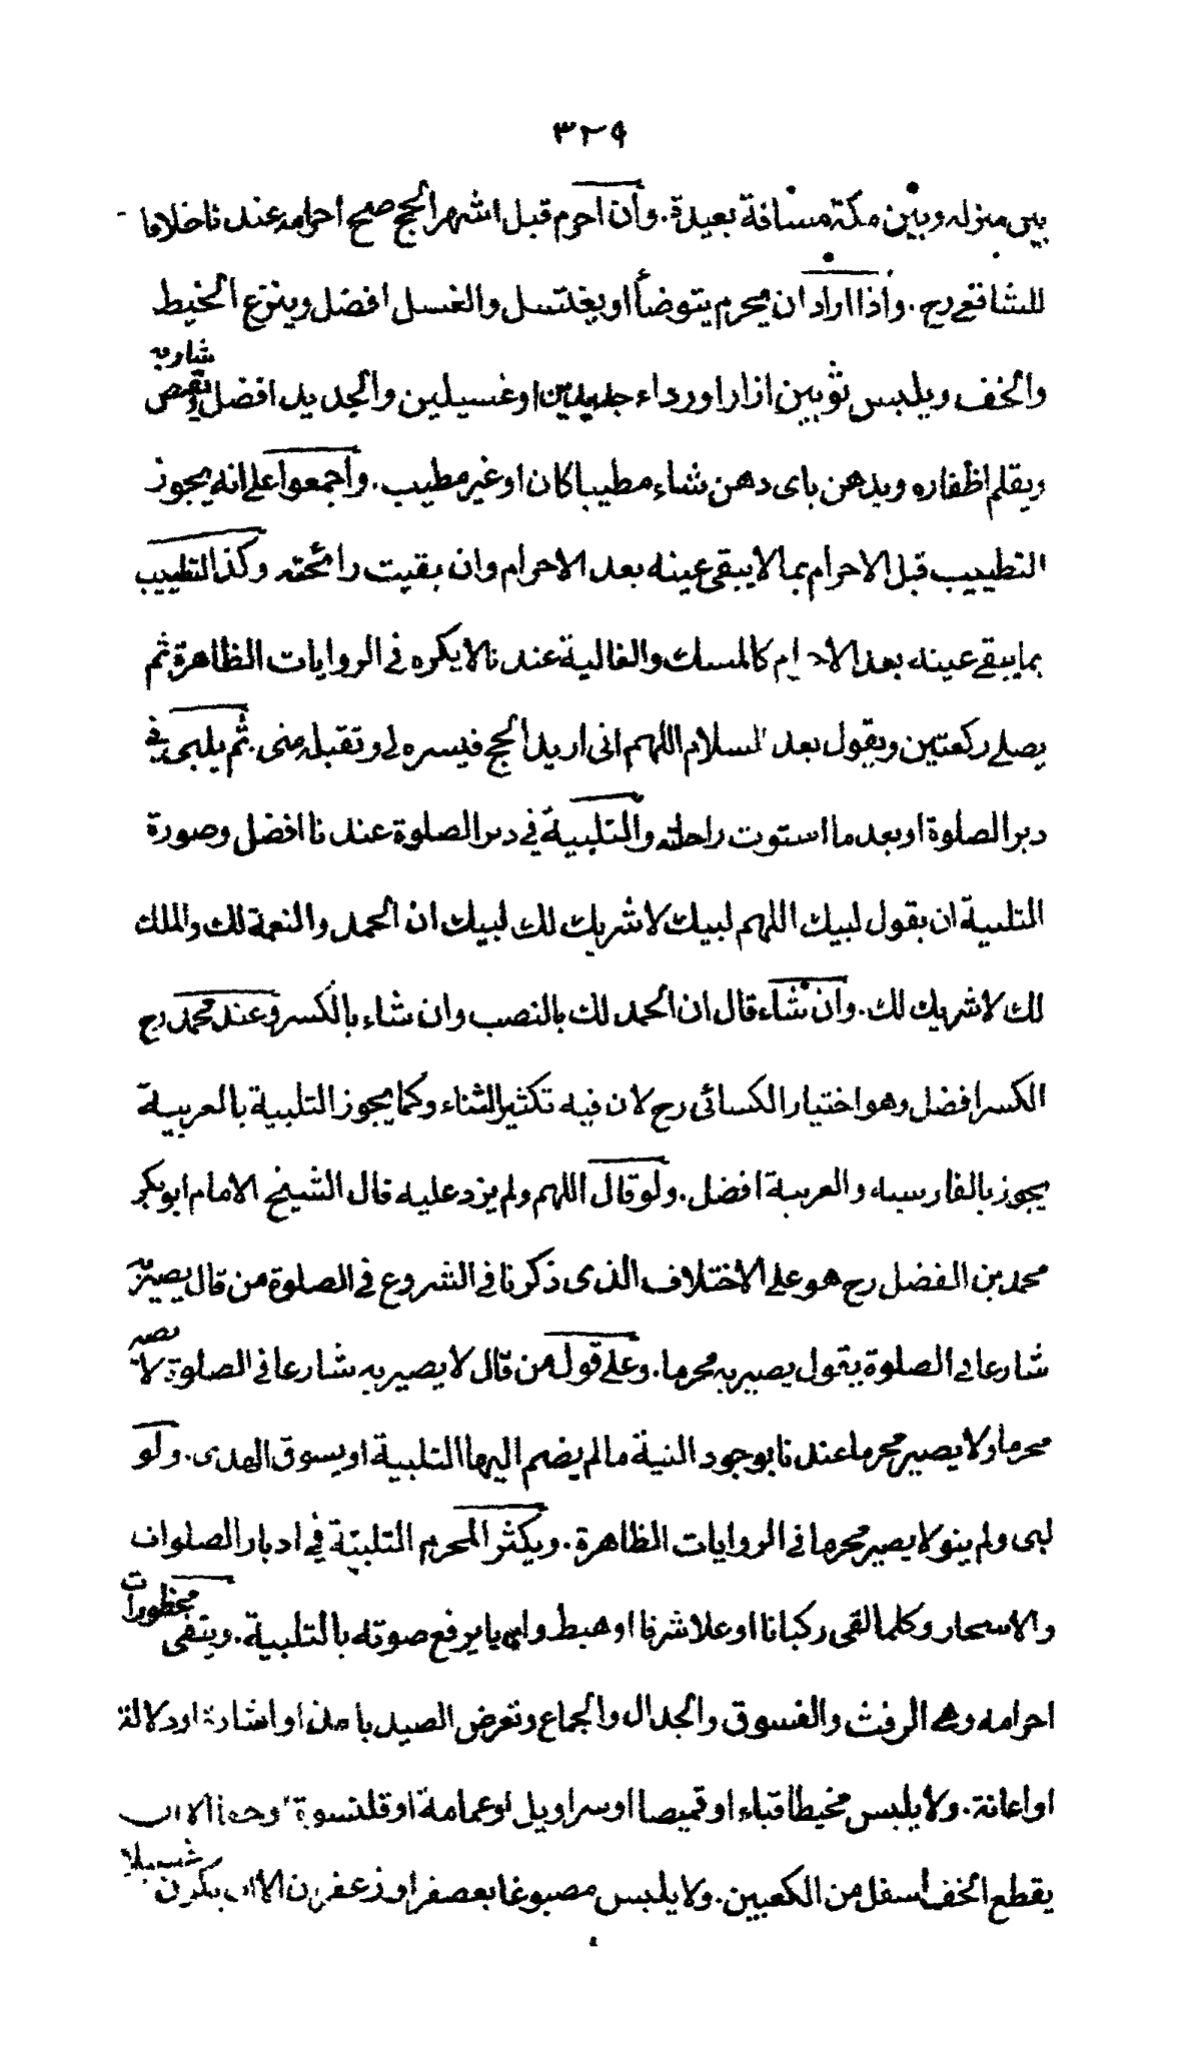 ٣٢٩
بين منزله وبين مكة مسافة بعيدة. وان احرم قبل اشهر الحج صح احرامه عندنا خلافا
للشافعي رح. واذا اراد ان يحرم يتوضأ او يغتسل والغسل افضل وينزع المخيط
والخف ويلبس ثوبين ازارا ورداء جديدين او غسيلين والجديد افضل ويقص شاربه
ويقلم اظفاره ويدهن باى دهن شاء مطيبا كان او غير مطيب. واجمعوا على انه يجوز
التطييب قبل الاحرام بما لا يبقى عينه بعد الاحرام وان بقيت رائحته وكذا التطييب
بما يبقى عينه بعد الاحرام كالمسك والغالية عندنا لا يكره فى الروايات الظاهرة ثم
يصلى ركعتين ويقول بعد السلام اللهم انى اريد الحج فيسره لى وتقبله منى. ثم يلبى فى
دبر الصلوة او بعد ما استوت راحلته والتلبية فى دبر الصلوة عندنا افضل وصورة
التلبية ان يقول لبيك اللهم لبيك لا شريك لك لبيك ان الحمد والنعمة لك والملك
لك لا شريك لك. وان شاء قال ان الحمد لك بالنصب وان شاء بالكسر وعند محمد رح
الكسر افضل وهو اختيار الكسائى رح لان فيه تكثير الثناء وكما يجوز التلبية بالعربية
يجوز بالفارسية والعربية افضل. ولو قال اللهم ولم يزد عليه قال الشيخ الامام ابو بكر
محمد بن الفضل رح هو على الاختلاف الذى ذكرنا فى الشروع فى الصلوة من قال يصير به
شارعا فى الصلوة يقول يصير به محرما. وعلى قول من قال لا يصير به شارعا فى الصلوة لا يصير
محرما ولا يصير محرما عندنا بوجود النية ما لم يضم اليها التلبية او يسوق الهدى. ولو
لبى ولم ينو لا يصير محرما فى الروايات الظاهرة. ويكثر المحرم التلبية فى ادبار الصلوات
والاسحار وكلما لقى ركبانا او علا شرفا او هبط واديا يرفع صوته بالتلبية. ويتقى محظورات
احرامه وهى الرفث والفسوق والجدال والجماع وتعرض الصيد باخذ او اشارة او دلالة
او اعانة. ولا يلبس مخيطا قباء او قميصا او سراويل او عمامة او قلنسوة
يقطع الخف اسفل من الكعبين. ولا يلبس مصبوغا بعصفر او زعفران الا ان يكون غسيلا